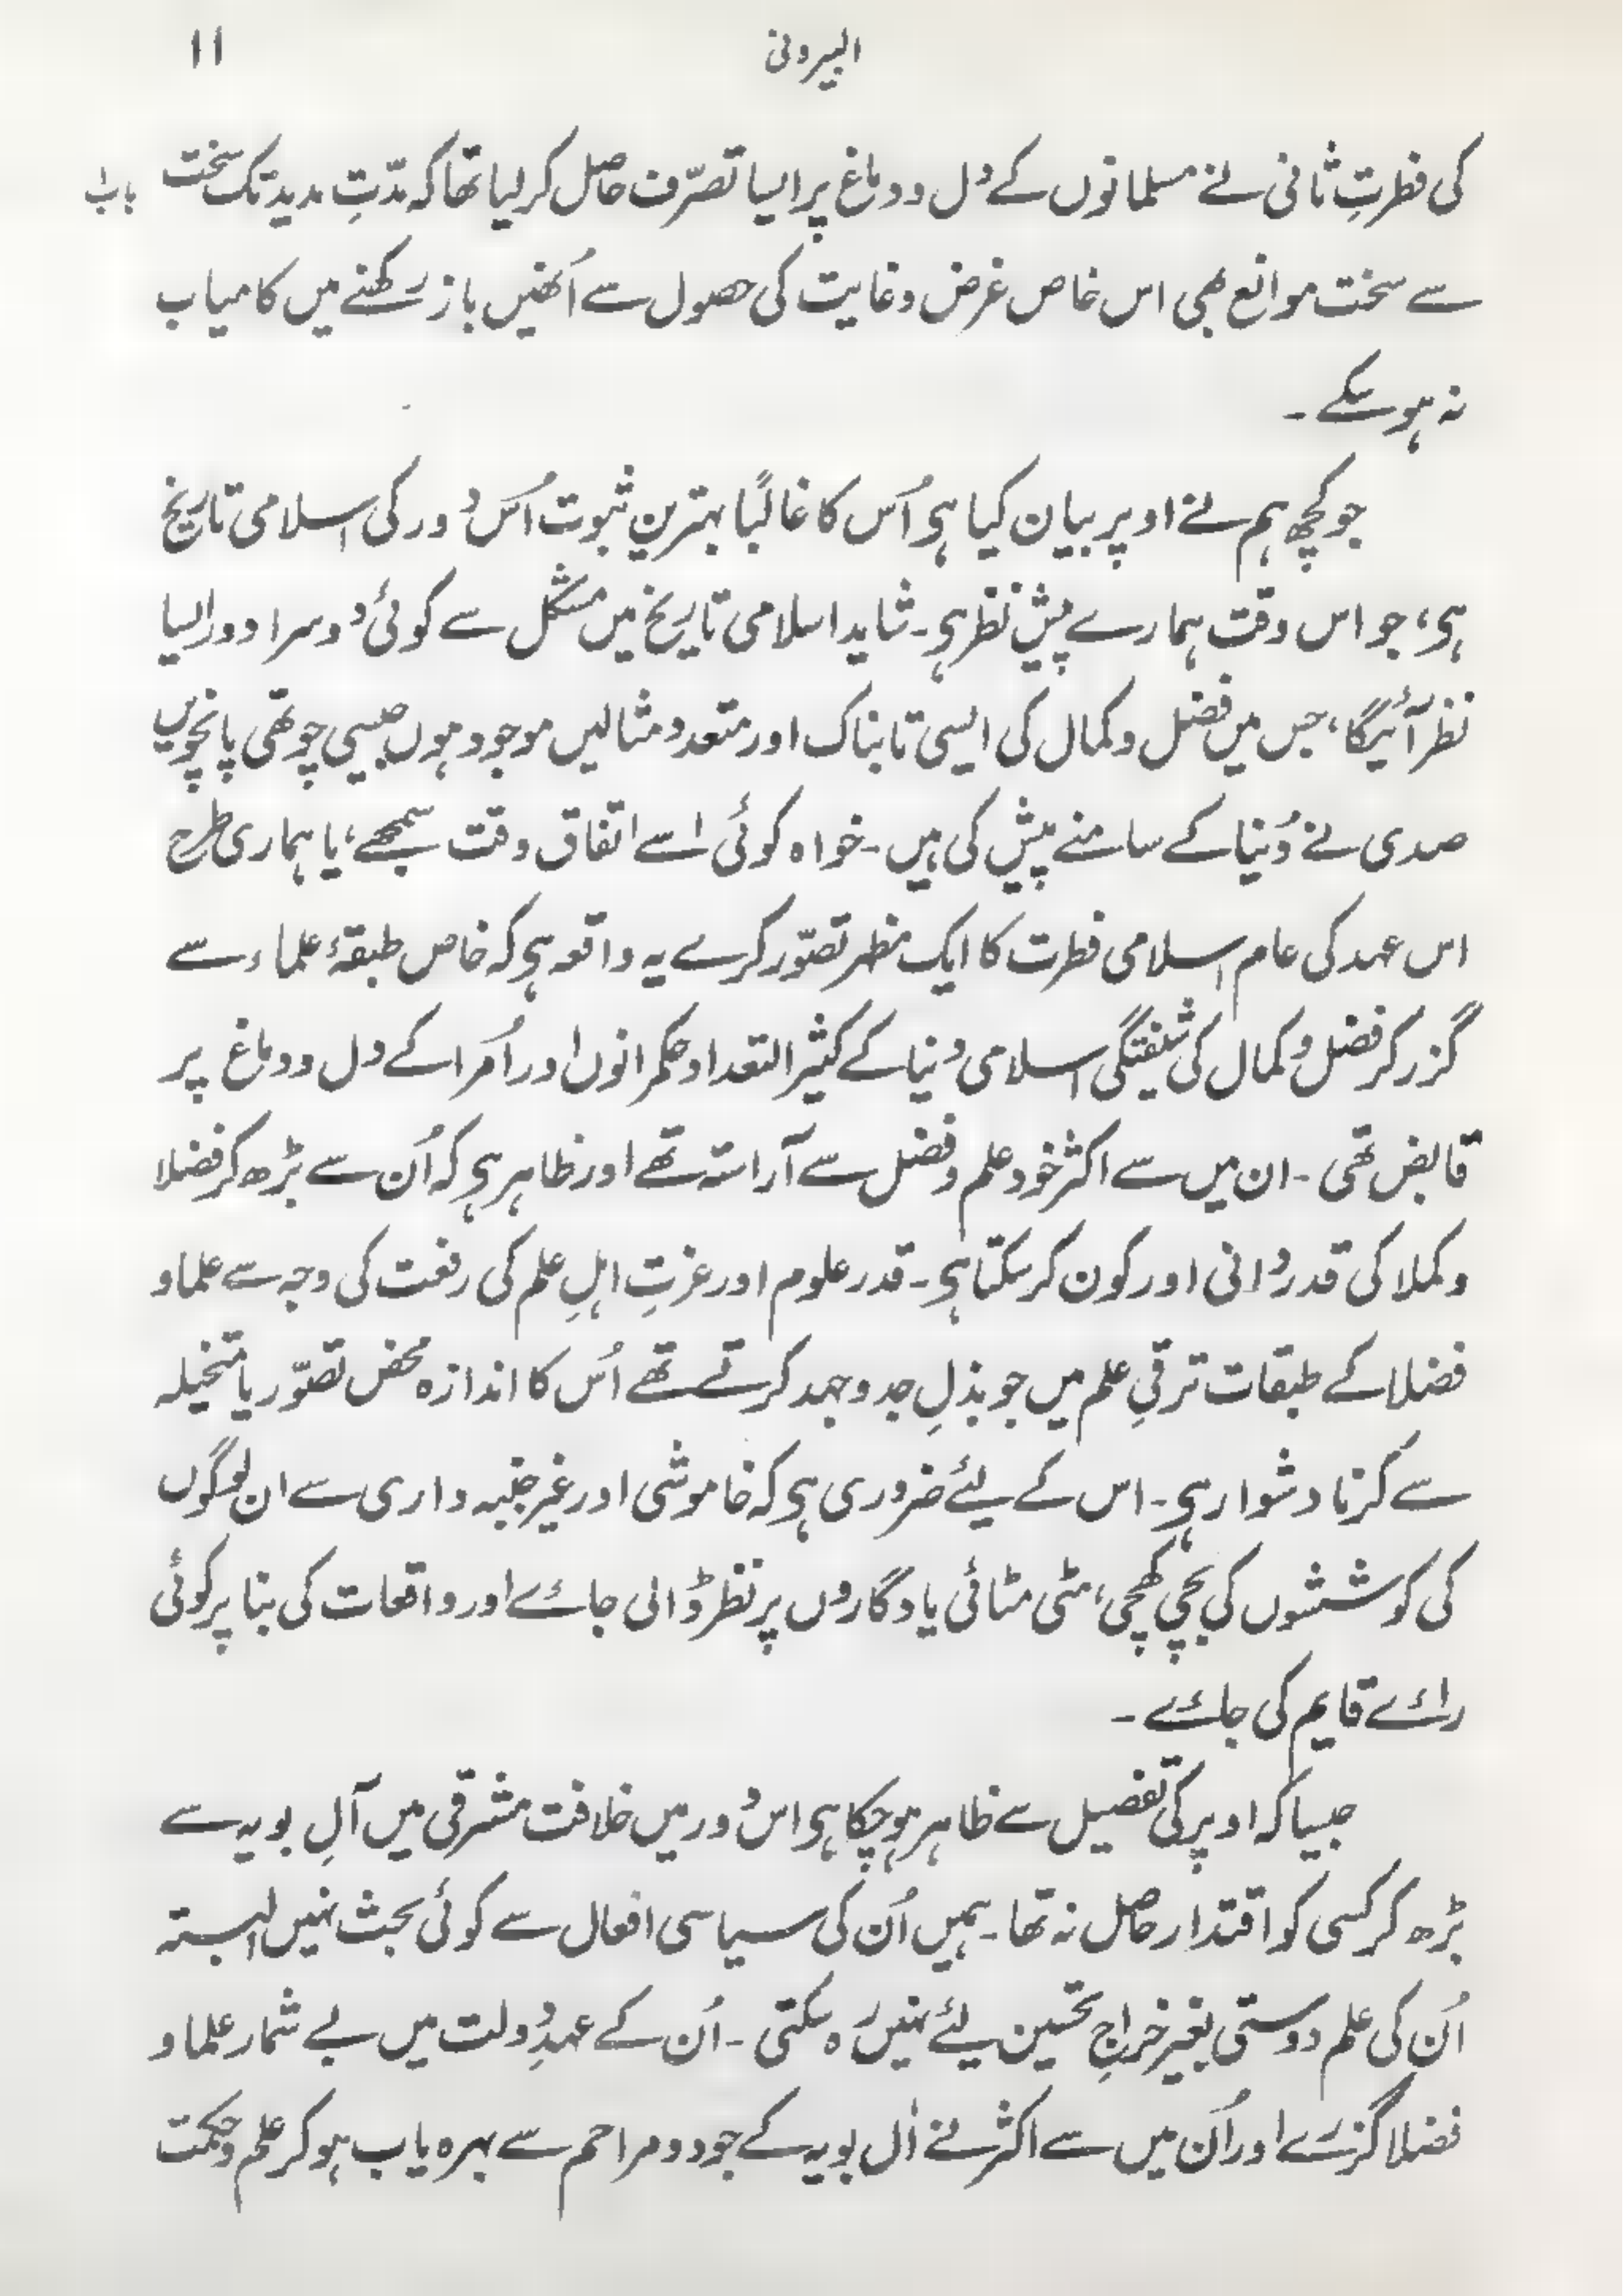 البیرونی ۱۱
کی فطرتِ ثانی نے مسلمانوں کے دل و دماغ پر ایسا تصرّف حاصل کر لیا تھا کہ مدّتِ مدید تک سخت باب
سے سخت موانع بھی اس خاص غرض و غایت کی حصول سے اُنھیں باز رکھنے میں کامیاب
نہ ہو سکے ۔
جو کچھ ہم نے اوپر بیان کیا ہی اُس کا غالبًا بہترین ثبوت اُس دَور کی اسلامی تاریخ
ہی، جو اس وقت ہمارے پیش نظر ہی۔ شاید اسلامی تاریخ میں مشکل سے کوئی دوسرا دور ایسا
نظر آئیگا، جس میں فضل و کمال کی ایسی تابناک اور متعدد مثالیں موجود ہوں جیسی چوتھی پانچویں
صدی نے دُنیا کے سامنے پیش کی ہیں ۔ خواہ کوئی اسے اتفاق وقت سمجھے، یا ہماری طرح
اس عہد کی عام اسلامی فطرت کا ایک مظہر تصوّر کرے یہ واقعہ ہی کہ خاص طبقۂ علماء سے
گزر کر فضل و کمال کی شیفتگی اسلامی دنیا کے کثیر التعداد حکمرانوں اور اُمرا کے دل و دماغ پر
قابض تھی ۔ ان میں سے اکثر خود علم و فضل سے آراستہ تھے اور ظاہر ہی کہ اُن سے بڑھ کر فضلا
و کملا کی قدر دانی اور کون کر سکتا ہی۔ قدر علوم اور عزتِ اہلِ علم کی رفعت کی وجہ سے علما و
فضلا کے طبقات ترقیِ علم میں جو بذلِ جد و جہد کرتے تھے اُس کا اندازہ محض تصوّر یا متخیلہ
سے کرنا دشوار ہی ۔ اس کے لیئے ضروری ہی کہ خاموشی اور غیر جنبہ داری سے ان لوگوں
کی کوششوں کی بچی کھچی، مٹی مٹائی یادگاروں پر نظر ڈالی جائے اور واقعات کی بنا پر کوئی
رائے قایم کی جائے ۔
جیسا کہ اوپر کی تفصیل سے ظاہر ہو چکا ہی اس دَور میں خلافت مشرقی میں آلِ بویہ سے
بڑھ کر کسی کو اقتدار حاصل نہ تھا۔ ہمیں اُن کی سیاسی افعال سے کوئی بحث نہیں البستہ
اُن کی علم دوستی بغیر خراجِ تحسین لیئے نہیں رہ سکتی ۔ اُن کے عہدِ دولت میں بے شمار علما و
فضلا گزرے اور اُن میں سے اکثر نے اٰل بویہ کے جود و مراحم سے بہرہ یاب ہو کر علم و حکمت